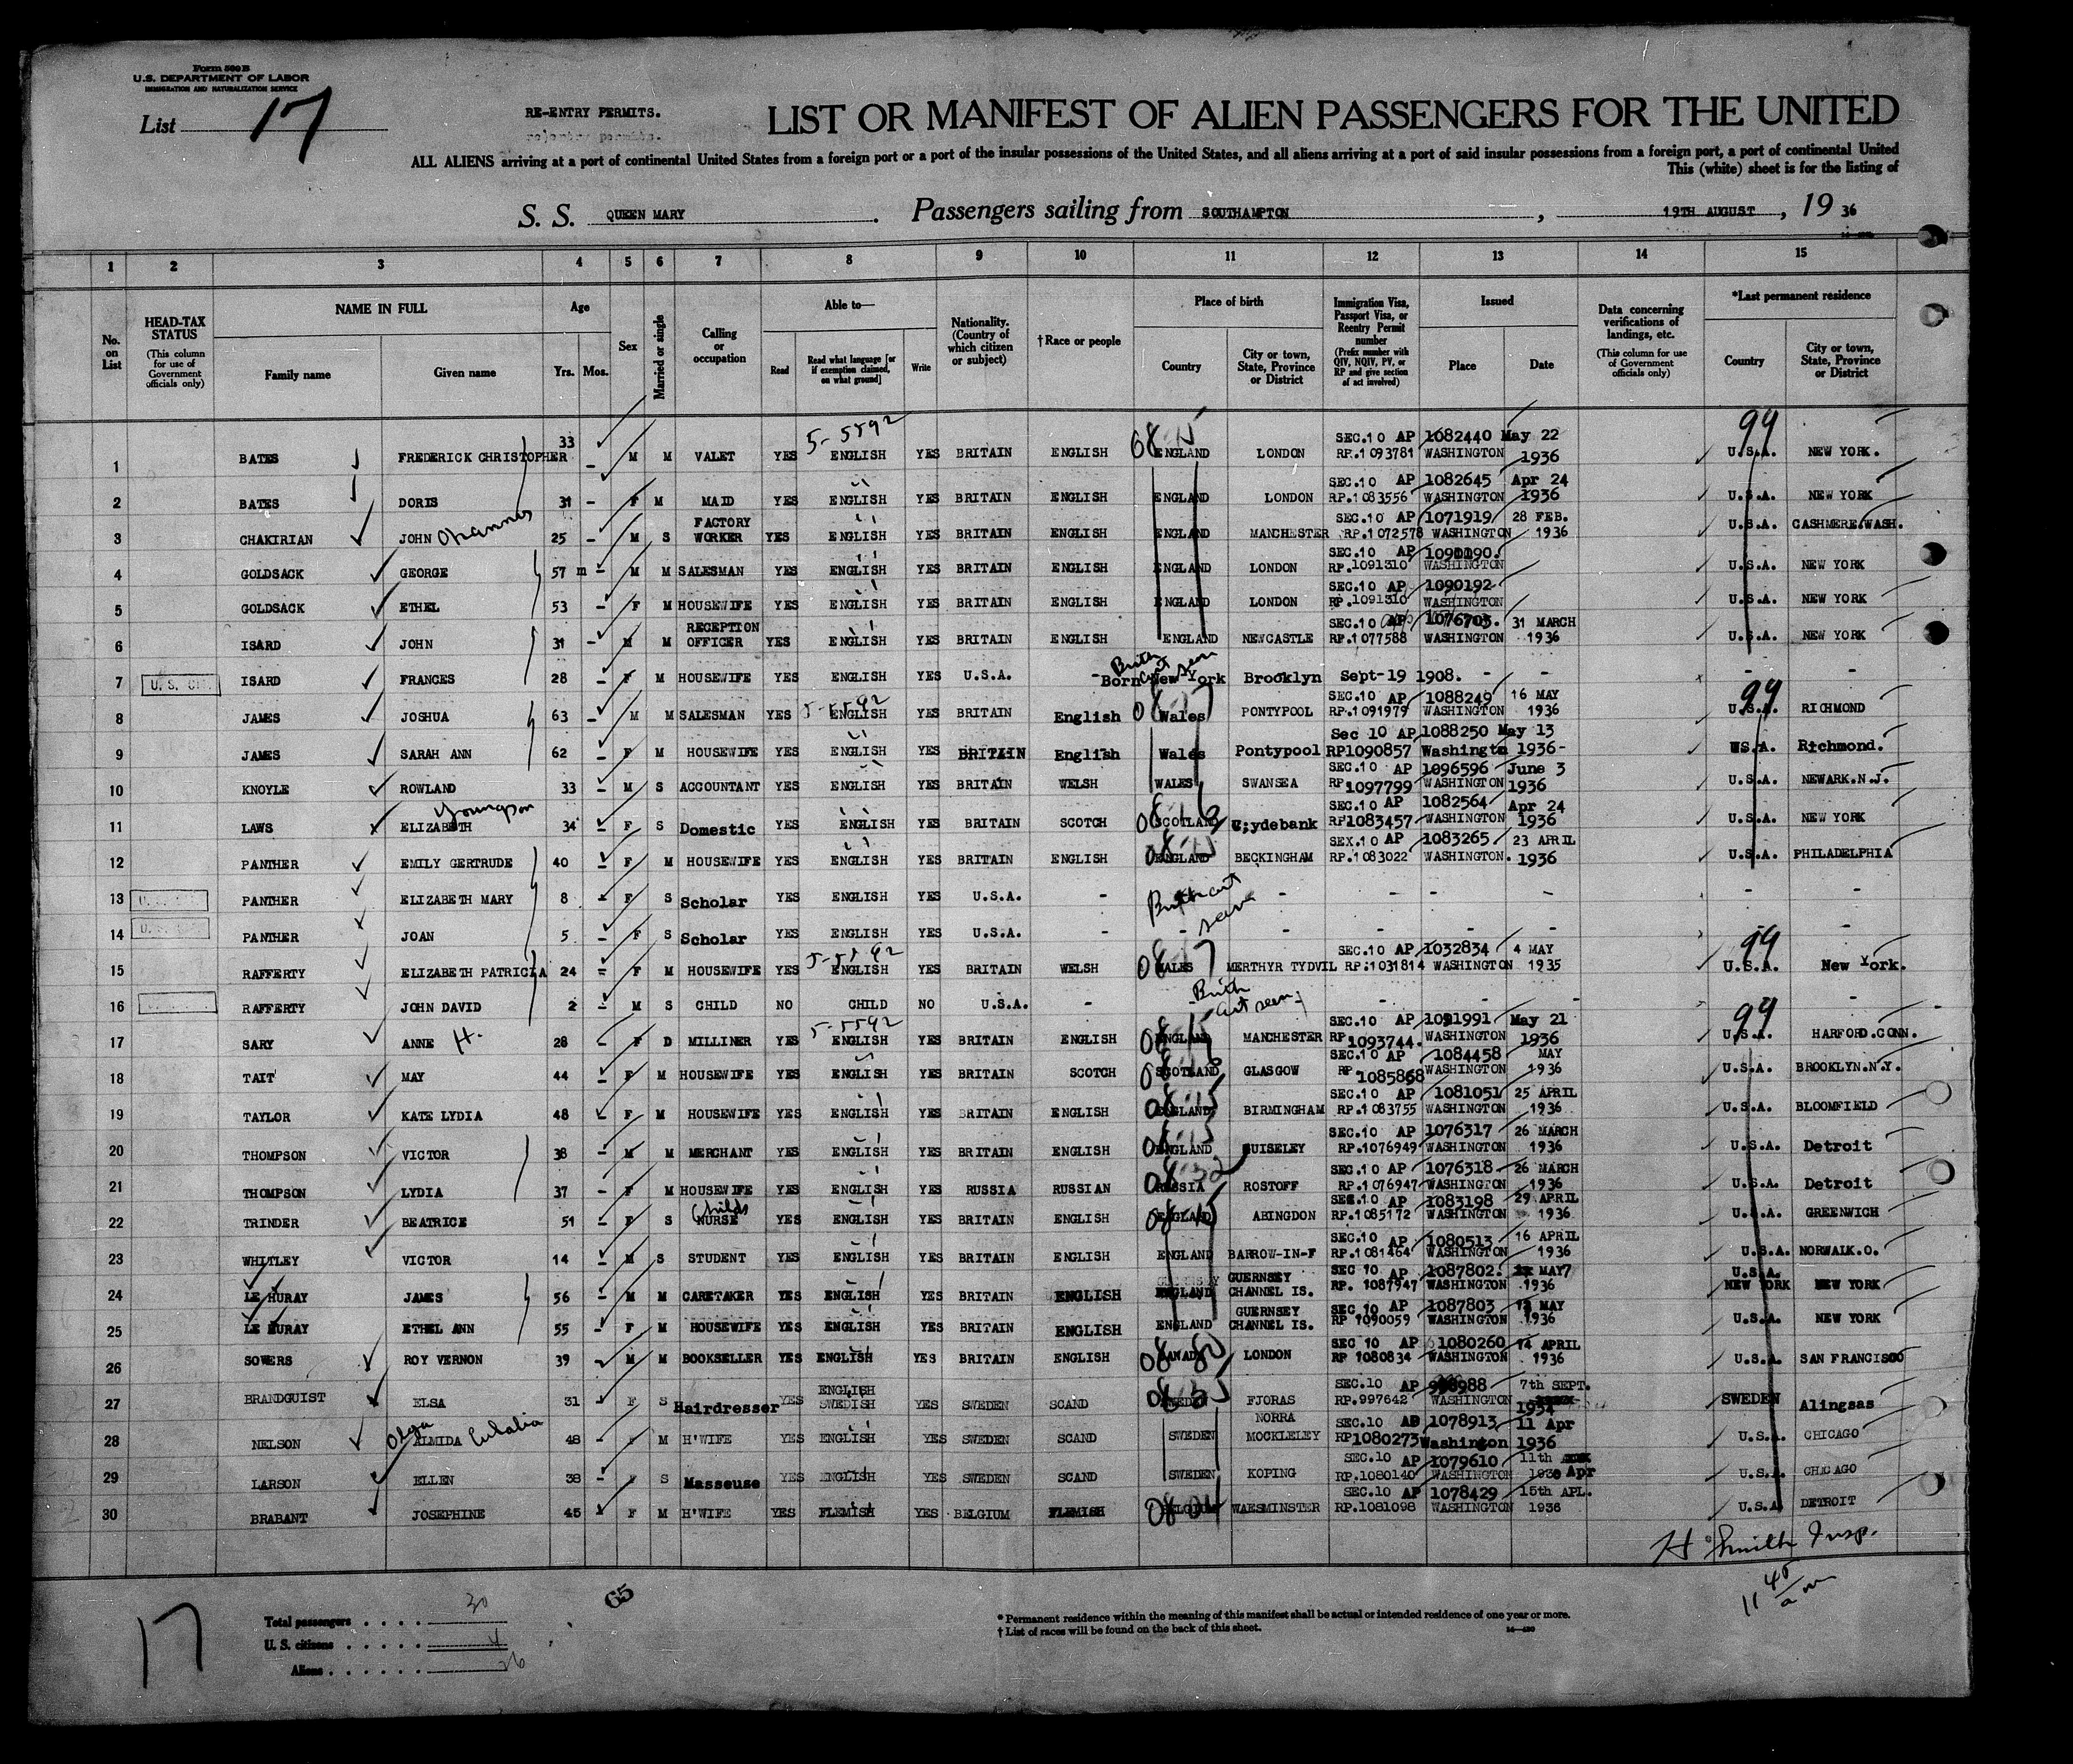 Form 560 B
U.S. DEPARTMENT OF LABOR
IMMIGRATION AND NATURALIZATION SERVICE
List 17
RE-ENTRY PERMITS.
LIST OR MANIFEST OF ALIEN PASSENGERS FOR THE UNITED
ALL ALIENS arriving at a port of continental United States from a foreign port or a port of the insular possessions of the United States, and all aliens arriving at a port of said insular possessions from a foreign port, a port of continental United
This (white) sheet is for the listing of
S. S. QUEEN MARY. Passengers sailing from SOUTHAMPTON, 19TH AUGUST, 1936
1 2 3 4 5 6 7 8 9 10 11 12 13 14 15
No. on List
HEAD-TAX STATUS (This column for use of Government officials only)
NAME IN FULL Family name Given name
Age Yrs. Mos.
Sex
Married or single
Calling or occupation
Able to— Read Read what language [or if exemption claimed, on what ground] Write
Nationality. (Country of which citizen or subject)
†Race or people
Place of birth Country City or town, State, Province or District
Immigration Visa, Passport Visa, or Reentry Permit number (Prefix number with QIV, NQIV, PV, or RP and give section of act involved)
Issued Place Date
Data concerning verifications of landings, etc. (This column for use of Government officials only)
*Last permanent residence Country City or town, State, Province or District
1 BATES FREDERICK CHRISTOPHER 33 - M M VALET YES 5-5592 ENGLISH YES BRITAIN ENGLISH ENGLAND LONDON SEC.10 AP 1082440 May 22 RP.1093781 WASHINGTON 1936 99 U.S.A. NEW YORK.
2 BATES DORIS 31 - F M MAID YES ENGLISH YES BRITAIN ENGLISH ENGLAND LONDON SEC.10 AP 1082645 Apr 24 RP.1083556 WASHINGTON 1936 U.S.A. NEW YORK
3 CHAKIRIAN JOHN Ohannes 25 - M S FACTORY WORKER YES ENGLISH YES BRITAIN ENGLISH ENGLAND MANCHESTER SEC.10 AP 1071919 28 FEB. RP.1072578 WASHINGTON 1936 U.S.A. CASHMERE.WASH.
4 GOLDSACK GEORGE 57 m - M M SALESMAN YES ENGLISH YES BRITAIN ENGLISH ENGLAND LONDON SEC.10 AP 1090190. RP.1091310 WASHINGTON U.S.A. NEW YORK
5 GOLDSACK ETHEL 53 - F M HOUSEWIFE YES ENGLISH YES BRITAIN ENGLISH ENGLAND LONDON SEC.10 AP 1090192 RP.1091310 WASHINGTON U.S.A. NEW YORK
6 ISARD JOHN 31 - M M RECEPTION OFFICER YES ENGLISH YES BRITAIN ENGLISH ENGLAND NEWCASTLE SEC.10 AP 1076703. 31 MARCH RP.1077588 WASHINGTON 1936 U.S.A. NEW YORK
7 U.S. CIT. ISARD FRANCES 28 - F M HOUSEWIFE YES ENGLISH YES U.S.A. - Birth cert seen Born New York Brooklyn Sept-19 1908. - - - -
8 JAMES JOSHUA 63 - M M SALESMAN YES 5-5592 ENGLISH YES BRITAIN English Wales PONTYPOOL SEC.10 AP 1088249 16 MAY RP.1091979 WASHINGTON 1936 99 U.S.A. RICHMOND
9 JAMES SARAH ANN 62 - F M HOUSEWIFE YES ENGLISH YES BRITAIN English Wales Pontypool Sec 10 AP 1088250 May 13 RP1090857 Washingtn 1936- U.S.A. Richmond.
10 KNOYLE ROWLAND 33 - M S ACCOUNTANT YES ENGLISH YES BRITAIN WELSH WALES SWANSEA SEC.10 AP 1096596 June 3 RP 1097799 WASHINGTON 1936 U.S.A. NEWARK.N.J.
11 LAWS ELIZABETH Youngson 34 - F S Domestic YES ENGLISH YES BRITAIN SCOTCH SCOTLAND Clydebank SEC.10 AP 1082564 Apr 24 RP1083457 WASHINGTON 1936 U.S.A. NEW YORK
12 PANTHER EMILY GERTRUDE 40 - F M HOUSEWIFE YES ENGLISH YES BRITAIN ENGLISH ENGLAND BECKINGHAM SEX.10 AP 1083265 23 APRIL RP.1083022 WASHINGTON. 1936 U.S.A. PHILADELPHIA
13 PANTHER ELIZABETH MARY 8 - F S Scholar YES ENGLISH YES U.S.A. - Birth cert seen - - - - - -
14 PANTHER JOAN 5 - F S Scholar YES ENGLISH YES U.S.A. - - - - - - - -
15 RAFFERTY ELIZABETH PATRICIA 24 - F M HOUSEWIFE YES 5-5592 ENGLISH YES BRITAIN WELSH WALES MERTHYR TYDVIL SEC.10 AP 1032834 4 MAY RP:1031814 WASHINGTON 1935 99 U.S.A. New York.
16 RAFFERTY JOHN DAVID 2 - M S CHILD NO CHILD NO U.S.A. - Birth cert seen - - - - -
17 SARY ANNE H. 28 - F D MILLINER YES 5-5592 ENGLISH YES BRITAIN ENGLISH ENGLAND MANCHESTER SEC.10 AP 1091991 May 21 RP 1093744. WASHINGTON 1936 99 U.S.A. HARFORD.CONN.
18 TAIT MAY 44 - F M HOUSEWIFE YES ENGLISH YES BRITAIN SCOTCH SCOTLAND GLASGOW SEC.10 AP 1084458 MAY RP. 1085868 WASHINGTON 1936 U.S.A. BROOKLYN.N.Y.
19 TAYLOR KATE LYDIA 48 - F M HOUSEWIFE YES ENGLISH YES BRITAIN ENGLISH ENGLAND BIRMINGHAM SEC.10 AP 1081051 25 APRIL RP.1083755 WASHINGTON 1936 U.S.A. BLOOMFIELD
20 THOMPSON VICTOR 38 - M M MERCHANT YES ENGLISH YES BRITAIN ENGLISH ENGLAND GUISELEY SEC.10 AP 1076317 26 MARCH RP.1076949 WASHINGTON 1936 U.S.A. Detroit
21 THOMPSON LYDIA 37 - F M HOUSEWIFE YES ENGLISH YES RUSSIA RUSSIAN RUSSIA ROSTOFF SEC.10 AP 1076318 26 MARCH RP.1076947 WASHINGTON 1936 U.S.A. Detroit
22 TRINDER BEATRICE 51 - F S Childs NURSE YES ENGLISH YES BRITAIN ENGLISH ENGLAND ABINGDON SEC.10 AP 1083198 29 APRIL RP.1085172 WASHINGTON 1936 U.S.A. GREENWICH
23 WHITLEY VICTOR 14 - M S STUDENT YES ENGLISH YES BRITAIN ENGLISH ENGLAND BARROW-IN-F SEC.10 AP 1080513 16 APRIL RP.1081464 WASHINGTON 1936 U.S.A. NORWALK.O.
24 LE HURAY JAMES 56 - M M CARETAKER YES ENGLISH YES BRITAIN ENGLISH ENGLAND GUERNSEY CHANNEL IS. SEC 10 AP 1087802. MAY7 RP. 1087947 WASHINGTON 1936 U.S.A. NEW YORK NEW YORK
25 LE HURAY ETHEL ANN 55 - F M HOUSEWIFE YES ENGLISH YES BRITAIN ENGLISH ENGLAND GUERNSEY CHANNEL IS. SEC 10 AP 1087803 MAY RP 1090059 WASHINGTON 1936 U.S.A. NEW YORK
26 SOWERS ROY VERNON 39 M M BOOKSELLER YES ENGLISH YES BRITAIN ENGLISH CANADA LONDON SEC 10 AP 1080260 14 APRIL RP 1080834 WASHINGTON 1936 U.S.A. SAN FRANCISCO
27 BRANDGUIST ELSA 31 F S Hairdresser YES ENGLISH SWEDISH YES SWEDEN SCAND SWEDEN FJORAS SEC.10 AP 7th SEPT. RP.997642 WASHINGTON 1934 SWEDEN Alingsas
28 NELSON Olga ALMIDA Eulalia 48 - F M H'WIFE YES ENGLISH YES SWEDEN SCAND SWEDEN NORRA MOCKLELEY SEC.10 AP 1078913 11 Apr RP1080273 Washington 1936 U.S.A. CHICAGO
29 LARSON ELLEN 38 - F S Masseuse YES ENGLISH YES SWEDEN SCAND SWEDEN KOPING SEC.10 AP 1079610 11th Apr RP.1080140 WASHINGTON 1936 U.S.A. CHICAGO
30 BRABANT JOSEPHINE 45 F M H'WIFE YES FLEMISH YES BELGIUM FLEMISH BELGIUM WAESMINSTER SEC.10 AP 1078429 15th APL. RP.1081098 WASHINGTON 1936 U.S.A DETROIT
H Smith Insp.
11 45 am
17
65
Total passengers . . . . 30
U. S. citizens . . . . . 4
Aliens . . . . . . 26
* Permanent residence within the meaning of this manifest shall be actual or intended residence of one year or more.
† List of races will be found on the back of this sheet.